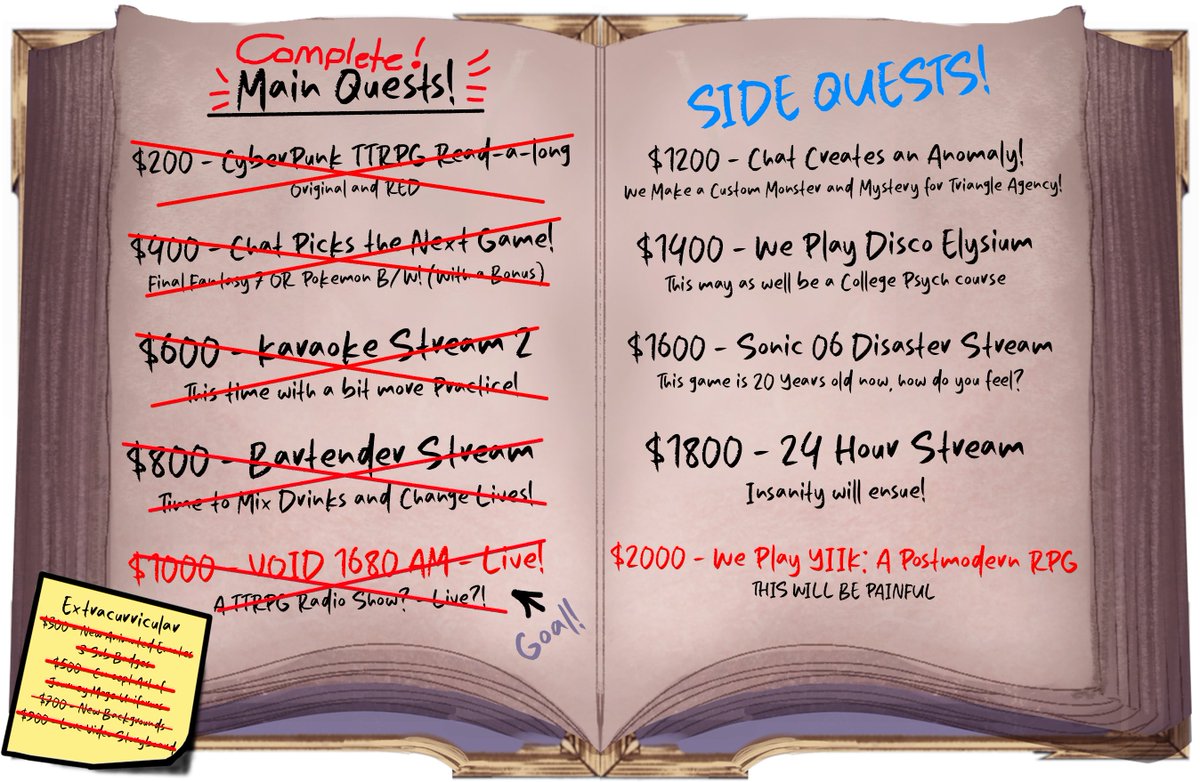 Complete!
Main Quests!
$200 - CyberPunk TTRPG Read-a-long
Original and RED
$400 - Chat Picks the Next Game!
Final Fantasy 7 OR Pokemon B/W! (With a Bonus)
$600 - Karaoke Stream 2
This time with a bit more Practice!
$800 - Bartender Stream
Time to Mix Drinks and Change Lives!
$1000 - VOID 1680 AM - Live!
A TTRPG Radio Show? - Live?!
Goal!
Extracurricular
$300 - New Animated Emotes
& Sub Badges
$500 - Concept Art of
Journey Mage Uniforms
$700 - New Backgrounds
$900 - Lore Video Storyboard
SIDE QUESTS!
$1200 - Chat Creates an Anomaly!
We Make a Custom Monster and Mystery for Triangle Agency!
$1400 - We Play Disco Elysium
This may as well be a College Psych course
$1600 - Sonic 06 Disaster Stream
This game is 20 Years old now, how do you feel?
$1800 - 24 Hour Stream
Insanity will ensue!
$2000 - We Play YIIK: A Postmodern RPG
THIS WILL BE PAINFUL